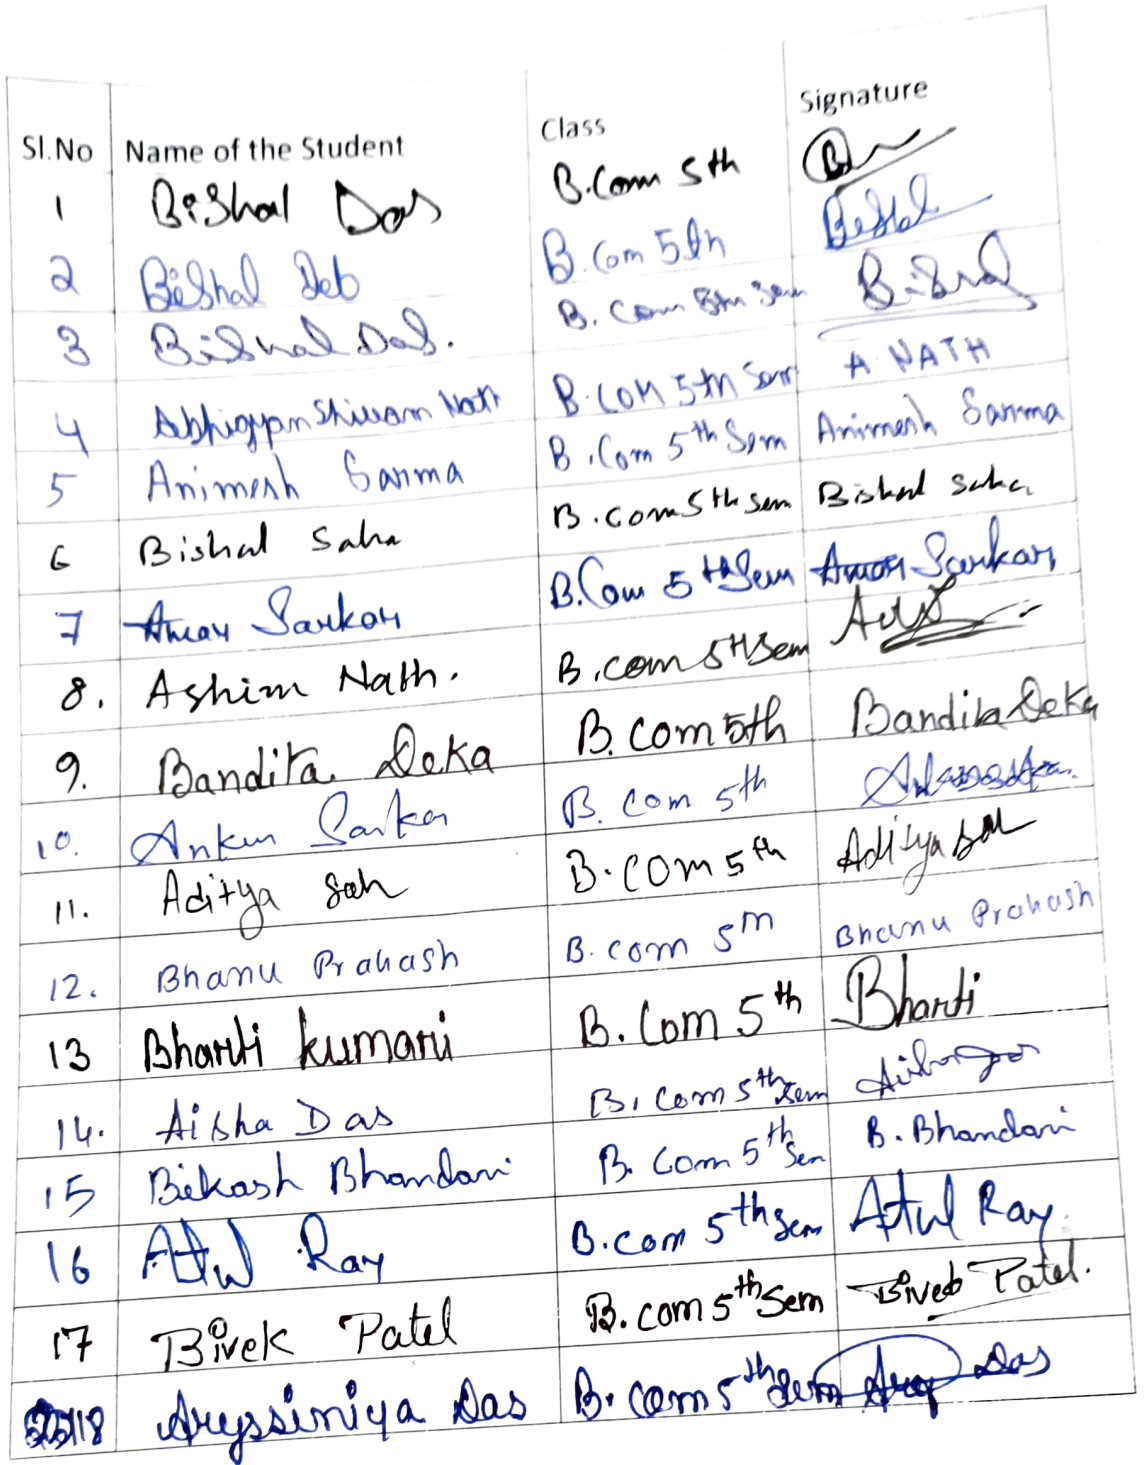 Sl.No Name of the Student Class Signature
1 Bishal Das B.Com 5th
2 Bishal Deb B.Com 5th Bishal
3 Bishal Das. B. Com 5th Sem Bishal
4 Abhigyan Shivam Nath B.COM 5th Sem A NATH
5 Animesh Sarma B.Com 5th Sem Animesh Sarma
6 Bishal Saha B.com 5th sem Bishal Saha
7 Amar Sarkar B.Com 5th Sem Amar Sarkar
8. Ashim Nath. B.com 5th Sem
9. Bandita Deka B.com 5th Bandita Deka
10. Ankur Sarkar B. Com 5th
11. Aditya Sah B.COM 5th Aditya Sah
12. Bhanu Prakash B.com 5th Bhanu Prakash
13 Bharti kumari B.Com 5th Bharti
14. Aisha Das B. Com 5th Sem
15 Bikash Bhandari B. Com 5th Sem B. Bhandari
16 Atul Ray B.com 5th Sem Atul Ray
17 Bivek Patel B.com 5th Sem Bivek Patel.
18 Aryssiniya Das B. Com 5th Sem Das